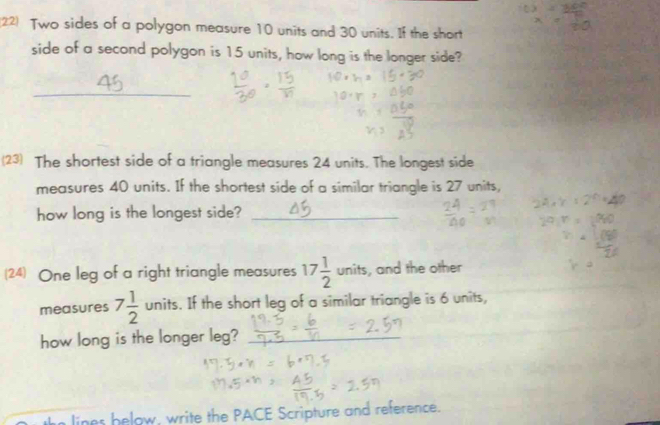 22) Two sides of a polygon measure 10 units and 30 units. If the short
side of a second polygon is 15 units, how long is the longer side?
45
10/30 = 15/n
10·n = 15·30
10·n = 450
n = 450/10
n = 45
(23) The shortest side of a triangle measures 24 units. The longest side
measures 40 units. If the shortest side of a similar triangle is 27 units,
how long is the longest side? 45
24/40 = 27/n
(24) One leg of a right triangle measures 17 1/2 units, and the other
measures 7 1/2 units. If the short leg of a similar triangle is 6 units,
how long is the longer leg?
17.5/7.5 = 6/n = 2.57
17.5·n = 6·7.5
17.5·n = 45/17.5 = 2.57
the lines below, write the PACE Scripture and reference.